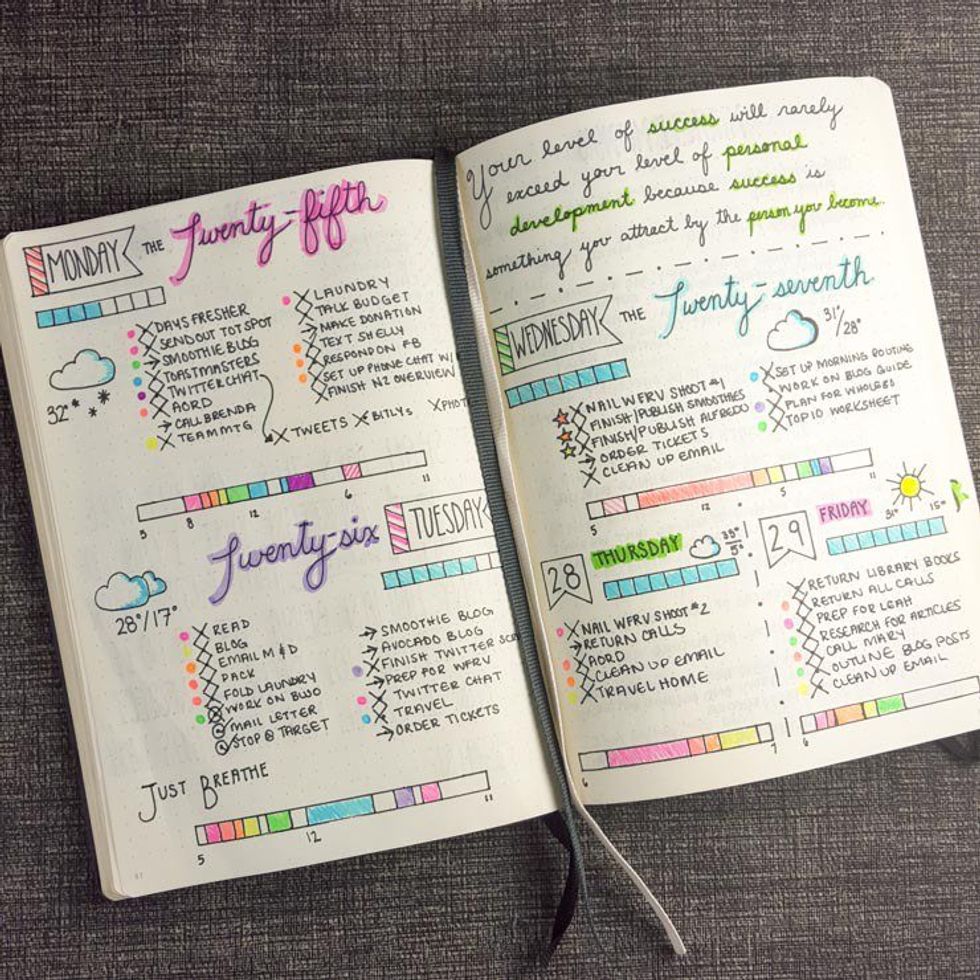 MONDAY THE Twenty-fifth
32°
DAYS FRESHER
SENDOUT TOT SPOT
SMOOTHIE BLOG
TOASTMASTERS
TWITTERCHAT
AORD
CALL BRENDA
TEAM MTG
LAUNDRY
TALK BUDGET
MAKE DONATION
TEXT SHELLY
RESPOND ON FB
SET UP PHONE CHAT W/
FINISH N2 OVERVIEW
TWEETS BITLYS PHOT
5 8 12 6 11
Twenty-six TUESDAY
28°/17°
READ
BLOG
EMAIL M & D
PACK
FOLD LAUNDRY
WORK ON BWO
MAIL LETTER
STOP @ TARGET
SMOOTHIE BLOG
AVOCADO BLOG
FINISH TWITTER
PREP FOR WFRV
TWITTER CHAT
TRAVEL
ORDER TICKETS
JUST BREATHE
5 12 11
Your level of success will rarely
exceed your level of personal
development because success is
something you attract by the person you become.
WEDNESDAY THE Twenty-seventh
31°/28°
NAIL WFRV SHOOT #1
FINISH/PUBLISH SMOOTHIES
FINISH/PUBLISH ALFREDO
ORDER TICKETS
CLEAN UP EMAIL
SET UP MORNING ROUTINE
WORK ON BLOG GUIDE
PLAN FOR WHOLE30
TOP 10 WORKSHEET
5 12 5 11
28 THURSDAY
35°
5°
NAIL WFRV SHOOT #2
RETURN CALLS
AORD
CLEAN UP EMAIL
TRAVEL HOME
6 7
29 FRIDAY
31° 15°
RETURN LIBRARY BOOKS
RETURN ALL CALLS
PREP FOR LEAH
RESEARCH FOR ARTICLES
CALL MARY
OUTLINE BLOG POSTS
CLEAN UP EMAIL
6